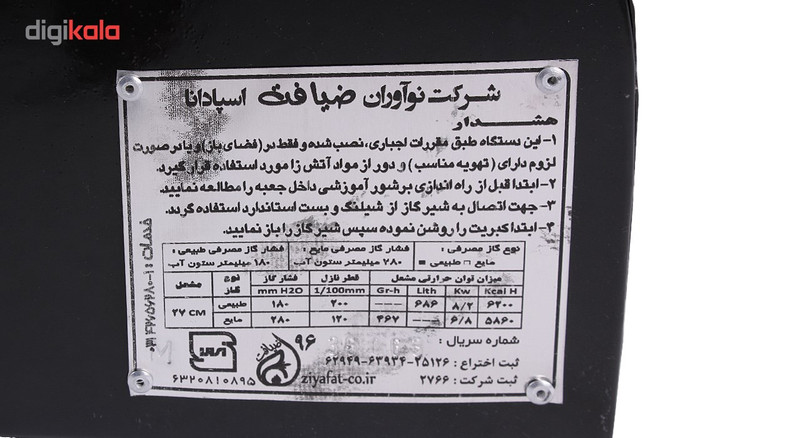 digikala
شرکت نوآوران ضیافت اسپادانا
هشدار
۱- این دستگاه طبق مقررات اجباری، نصب شده و فقط در (فضای باز) و یا در صورت
لزوم دارای (تهویه مناسب) و دور از مواد آتش زا مورد استفاده قرار گیرد.
۲- ابتدا قبل از راه اندازی برشور آموزشی داخل جعبه را مطالعه نمایید.
۳- جهت اتصال به شیر گاز از شیلنگ و بست استاندارد استفاده گردد.
۴- ابتدا کبریت را روشن نموده سپس شیر گاز را باز نمایید.
نوع گاز مصرفی : فشار گاز مصرفی مایع : فشار گاز مصرفی طبیعی :
مایع □ طبیعی ■ ۲۸۰ میلیمتر ستون آب ۱۸۰ میلیمتر ستون آب
میزان توان حرارتی مشعل قطر نازل فشار گاز نوع گاز مشعل
Kcal H Kw Lith Gr-h 1/100mm mm H2O
۶۲۰۰ ۸/۲ ۶۸۶ --- ۲۰۰ ۱۸۰ طبیعی ۲۷ CM
۵۸۶۰ ۶/۸ --- ۴۶۷ ۱۲۰ ۲۸۰ مایع
شماره سریال :
ثبت اختراع : ۳۵۱۲۶-۶۳۹۳۴-۶۲۹۴۹
ثبت شرکت : ۲۷۶۶
۹۶
ضیافت
ziyafat-co.ir
۶۳۲۰۸۱۰۸۹۵
خدمات :